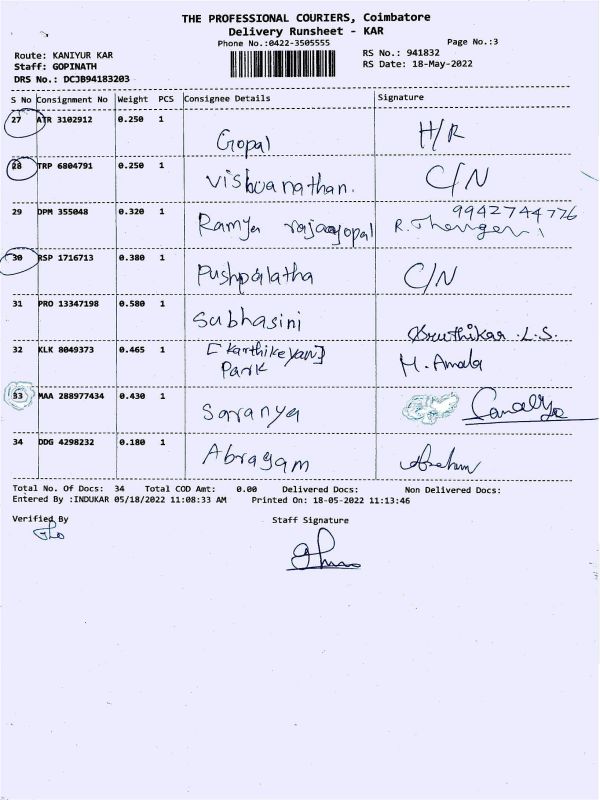 THE PROFESSIONAL COURIERS, Coimbatore
Delivery Runsheet - KAR
Phone No.:0422-3505555
Page No.:3
Route: KANIYUR KAR
Staff: GOPINATH
DRS No.: DCJB94183203
RS No.: 941832
RS Date: 18-May-2022
S No Consignment No Weight PCS Consignee Details Signature
27 ATR 3102912 0.250 1 Gopal H/R
28 TRP 6804791 0.250 1 Vishwanathan. C/N
9942744776
29 DPM 355048 0.320 1 Ramya rajagopal R.
30 RSP 1716713 0.380 1 Pushpalatha C/N
31 PRO 13347198 0.580 1 Subhasini L.S.
32 KLK 8049373 0.465 1 [Karthikeyan]
Park M. Amala
33 MAA 288977434 0.430 1 Saranya
34 DDG 4298232 0.180 1 Abragam
Total No. Of Docs: 34 Total COD Amt: 0.00 Delivered Docs: Non Delivered Docs:
Entered By :INDUKAR 05/18/2022 11:08:33 AM Printed On: 18-05-2022 11:13:46
Verified By
Staff Signature